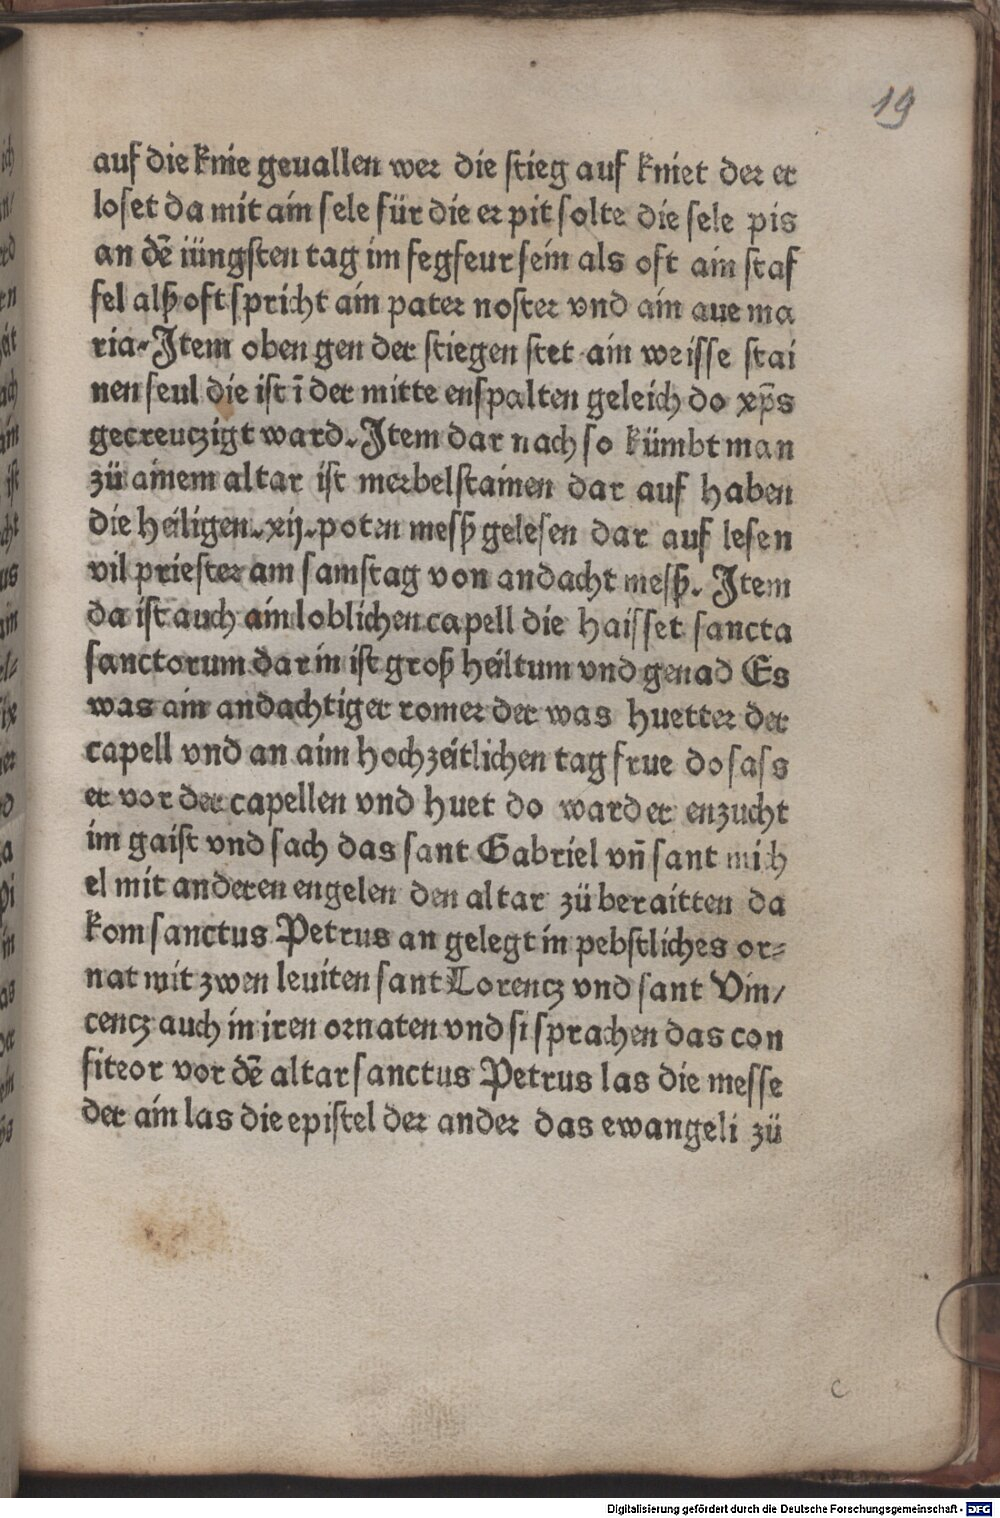 19
auf die knie geuallen wer die stieg auf kniet der er
loset da mit ain sele für die er pit solte die sele pis
an dē iüngsten tag im fegfeur sein als oft ain staf
fel alß oft spricht ain pater noster vnd ain aue ma
ria. Item oben gen der stiegen stet ain weisse stai
nen seul die ist ī der mitte enspalten geleich do xp̄s
gecreuczigt ward. Item dar nach so kümbt man
zü ainem altar ist merbelstainen dar auf haben
die heiligen .xij. poten meß gelesen dar auf lesen
vil priester am samstag von andacht meß. Item
da ist auch ain loblichen capell die haisset sancta
sanctorum dar in ist groß heiltum vnd genad Es
was ain andachtiger romer der was huetter der
capell vnd an aim hochzeitlichen tag frue do sass
er vor der capellen vnd huet do ward er enzucht
im gaist vnd sach das sant Gabriel vn̄ sant mich
el mit anderen engelen den altar zü beraitten da
kom sanctus Petrus an gelegt in pebstliches or=
nat mit zwen leuiten sant Lorencz vnd sant Vin/
cencz auch in iren ornaten vnd si sprachen das con
fiteor vor dē altar sanctus Petrus las die messe
der ain las die epistel der ander das ewangeli zü
c
Digitalisierung gefördert durch die Deutsche Forschungsgemeinschaft - DFG